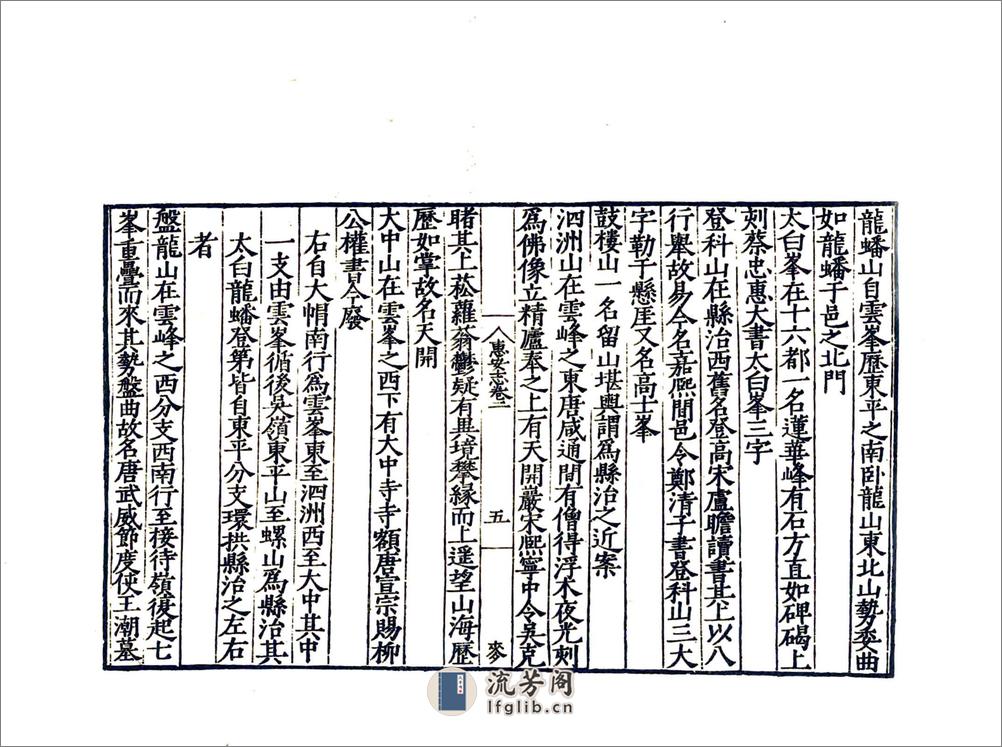 龍蟠山自雲峯歷東平之南卧龍山東北山勢委曲
如龍蟠于邑之北門
太白峯在十六都一名蓮華峰有石方直如碑碣上
刻蔡忠惠大書太白峯三字
登科山在縣治西舊名登高宋盧瞻讀書其上以八
行舉故易今名嘉熙間邑令鄭清子書登科山三大
字勒于懸厓又名高士峯
鼓樓山一名留山堪輿謂爲縣治之近案
泗洲山在雲峰之東唐咸通間有僧得浮木夜光刻
爲佛像立精廬奉之上有天開巖宋熙寧中令吳克
惠安志卷二
五
麥
睹其上菘蘿蓊鬱疑有異境攀緣而上遥望山海歷
歷如掌故名天開
大中山在雲峯之西下有大中寺寺額唐宣宗賜柳
公權書今廢
右自大帽南行爲雲峯東至泗洲西至大中其中
一支由雲峯循後吳嶺東平山至螺山爲縣治其
太白龍蟠登第皆自東平分支環拱縣治之左右
者
盤龍山在雲峰之西分支西南行至接待嶺復起七
峯重疊而來其勢盤曲故名唐武威節度使王潮墓
流芳阁
lfglib.cn